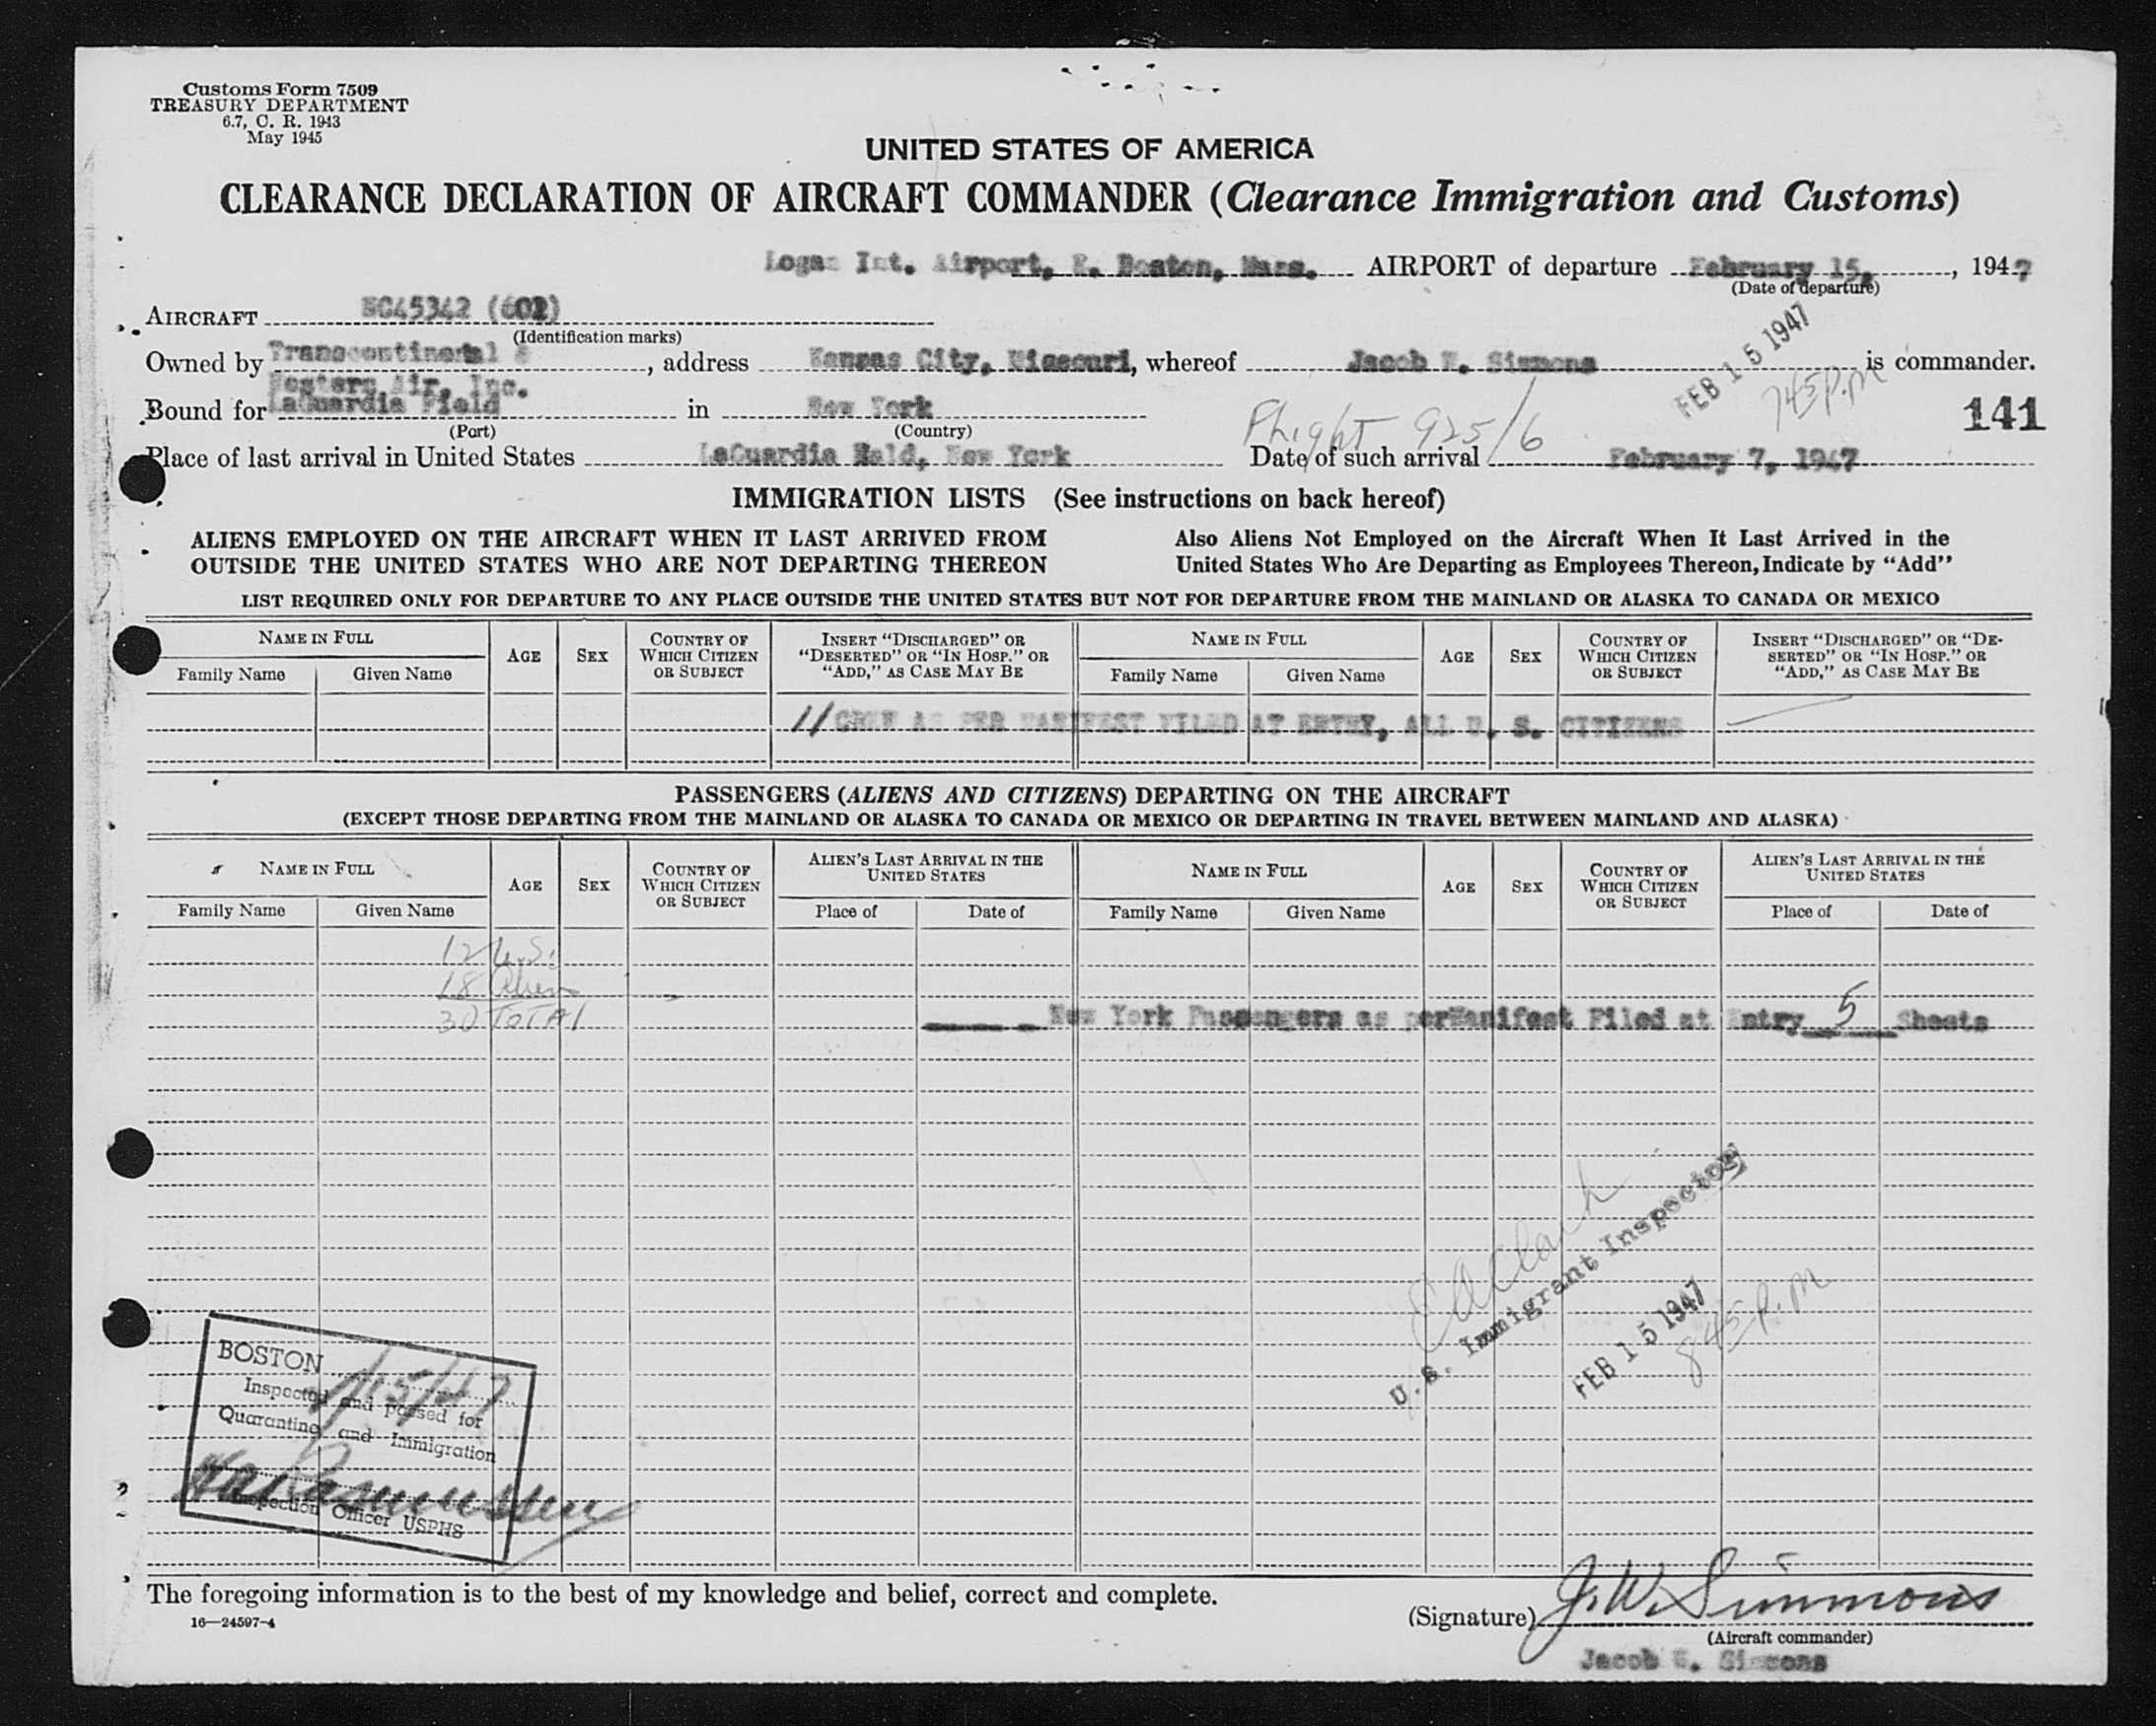 Customs Form 7509
TREASURY DEPARTMENT
6.7, C. R. 1943
May 1945
UNITED STATES OF AMERICA
CLEARANCE DECLARATION OF AIRCRAFT COMMANDER (Clearance Immigration and Customs)
Logan Int. Airport, E. Boston, Mass. AIRPORT of departure February 15, , 1947
(Date of departure)
AIRCRAFT NC45342 (601)
(Identification marks)
FEB 15 1947
745 P.M
Owned by Transcontinental & Western Air, Inc. , address Kansas City, Missouri, whereof Jacob W. Simmons is commander.
Bound for LaGuardia Field in New York
(Port) (Country)
Flight 925/6
141
Place of last arrival in United States LaGuardia Feld, New York Date of such arrival February 7, 1947
IMMIGRATION LISTS (See instructions on back hereof)
ALIENS EMPLOYED ON THE AIRCRAFT WHEN IT LAST ARRIVED FROM
OUTSIDE THE UNITED STATES WHO ARE NOT DEPARTING THEREON
Also Aliens Not Employed on the Aircraft When It Last Arrived in the
United States Who Are Departing as Employees Thereon, Indicate by “Add”
LIST REQUIRED ONLY FOR DEPARTURE TO ANY PLACE OUTSIDE THE UNITED STATES BUT NOT FOR DEPARTURE FROM THE MAINLAND OR ALASKA TO CANADA OR MEXICO
NAME IN FULL
Family Name Given Name
AGE
SEX
COUNTRY OF
WHICH CITIZEN
OR SUBJECT
INSERT “DISCHARGED” OR
“DESERTED” OR “IN HOSP.” OR
“ADD,” AS CASE MAY BE
NAME IN FULL
Family Name Given Name
AGE
SEX
COUNTRY OF
WHICH CITIZEN
OR SUBJECT
INSERT “DISCHARGED” OR “DE-
SERTED” OR “IN HOSP.” OR
“ADD,” AS CASE MAY BE
11 CREW AS PER MANIFEST FILED AT ENTRY, ALL U. S. CITIZENS
PASSENGERS (ALIENS AND CITIZENS) DEPARTING ON THE AIRCRAFT
(EXCEPT THOSE DEPARTING FROM THE MAINLAND OR ALASKA TO CANADA OR MEXICO OR DEPARTING IN TRAVEL BETWEEN MAINLAND AND ALASKA)
NAME IN FULL
Family Name Given Name
AGE
SEX
COUNTRY OF
WHICH CITIZEN
OR SUBJECT
ALIEN'S LAST ARRIVAL IN THE
UNITED STATES
Place of Date of
NAME IN FULL
Family Name Given Name
AGE
SEX
COUNTRY OF
WHICH CITIZEN
OR SUBJECT
ALIEN'S LAST ARRIVAL IN THE
UNITED STATES
Place of Date of
12 U.S.
18 Alien
30 TOTAL
New York Passengers as perManifest Filed at Entry 5 Sheets
U.S. Immigrant Inspector
FEB 15 1947
845 P.M
BOSTON
Inspected and passed for
Quarantine and Immigration
Rasmussen
Inspection Officer USPHS
The foregoing information is to the best of my knowledge and belief, correct and complete.
16—24597-4
(Signature) J.W. Simmons
(Aircraft commander)
Jacob W. Simmons